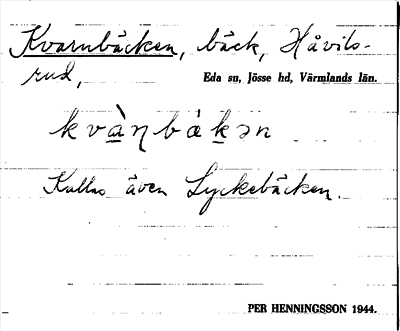 Kvarnbäcken, bäck, Håvils-
rud,
Eda sn, Jösse hd, Värmlands län.
kvàɳbákən
Kallas även Lyckebäcken.
PER HENNINGSSON 1944.